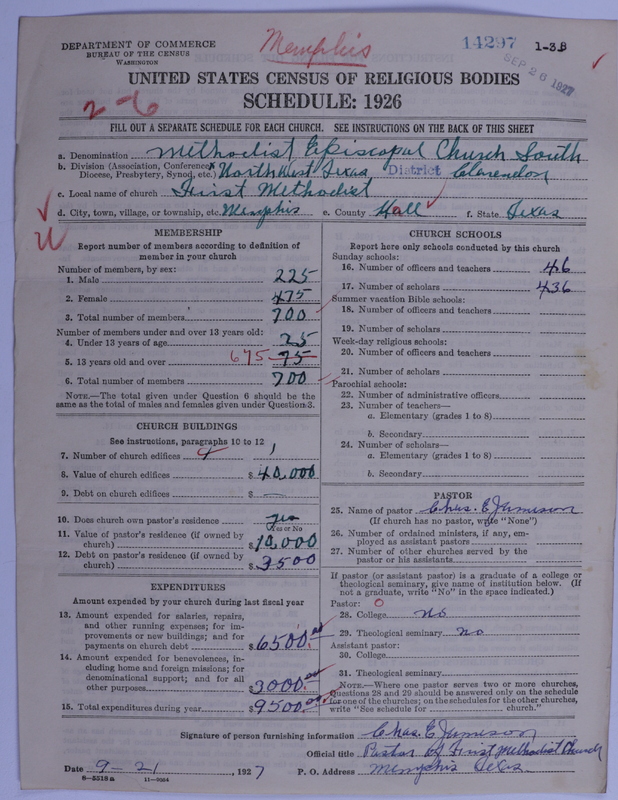 DEPARTMENT OF COMMERCE
BUREAU OF THE CENSUS
WASHINGTON
Memphis
14297
1-3B
SEP 26 1927
UNITED STATES CENSUS OF RELIGIOUS BODIES
SCHEDULE: 1926
2-6
FILL OUT A SEPARATE SCHEDULE FOR EACH CHURCH. SEE INSTRUCTIONS ON THE BACK OF THIS SHEET
a. Denomination Methodist Episcopal Church South
b. Division (Association, Conference, Diocese, Presbytery, Synod, etc.) Northwest Texas District Clarendon
c. Local name of church First Methodist
d. City, town, village, or township, etc. Memphis e. County Hall f. State Texas
MEMBERSHIP
Report number of members according to definition of
member in your church
Number of members, by sex:
1. Male 225
2. Female 475
3. Total number of members 700
Number of members under and over 13 years old:
4. Under 13 years of age 25
5. 13 years old and over 675 75
6. Total number of members 700
NOTE.—The total given under Question 6 should be the
same as the total of males and females given under Question 3.
CHURCH BUILDINGS
See instructions, paragraphs 10 to 12
7. Number of church edifices 1
8. Value of church edifices $ 40,000
9. Debt on church edifices $
10. Does church own pastor's residence yes
Yes or No
11. Value of pastor's residence (if owned by
church) $ 10,000
12. Debt on pastor's residence (if owned by
church) $ 3500
EXPENDITURES
Amount expended by your church during last fiscal year
13. Amount expended for salaries, repairs,
and other running expenses; for im-
provements or new buildings; and for
payments on church debt $ 6500.00
14. Amount expended for benevolences, in-
cluding home and foreign missions; for
denominational support; and for all
other purposes $ 3000.00
15. Total expenditures during year $ 9500.00
CHURCH SCHOOLS
Report here only schools conducted by this church
Sunday schools:
16. Number of officers and teachers 46
17. Number of scholars 436
Summer vacation Bible schools:
18. Number of officers and teachers
19. Number of scholars
Week-day religious schools:
20. Number of officers and teachers
21. Number of scholars
Parochial schools:
22. Number of administrative officers
23. Number of teachers—
a. Elementary (grades 1 to 8)
b. Secondary
24. Number of scholars—
a. Elementary (grades 1 to 8)
b. Secondary
PASTOR
25. Name of pastor Chas. E. Jameson
(If church has no pastor, write "None")
26. Number of ordained ministers, if any, em-
ployed as assistant pastors
27. Number of other churches served by the
pastor or his assistants
If pastor (or assistant pastor) is a graduate of a college or
theological seminary, give name of institution below. (If
not a graduate, write "No" in the space indicated.)
Pastor: 0
28. College No
29. Theological seminary No
Assistant pastor:
30. College
31. Theological seminary
NOTE.—Where one pastor serves two or more churches,
Questions 28 and 29 should be answered only on the schedule
for one of the churches; on the schedules for the other churches,
write "See schedule for ______ church."
Signature of person furnishing information Chas. E. Jameson
Official title Pastor of First Methodist Church
Date 9-21, 1927 P. O. Address Memphis Texas
8-5518a 11-9064